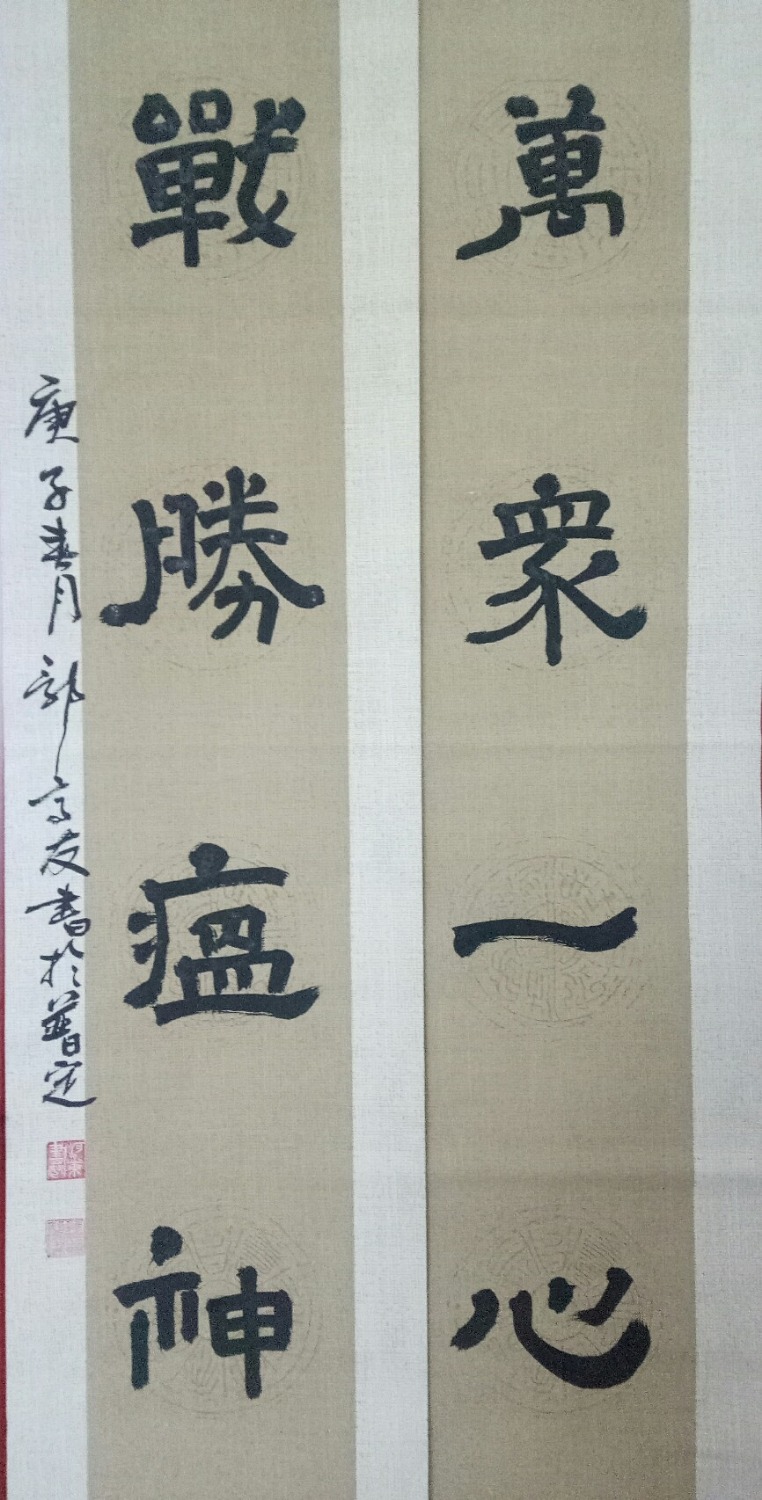 萬衆一心
戰勝瘟神
庚子春月郭高友書於普定